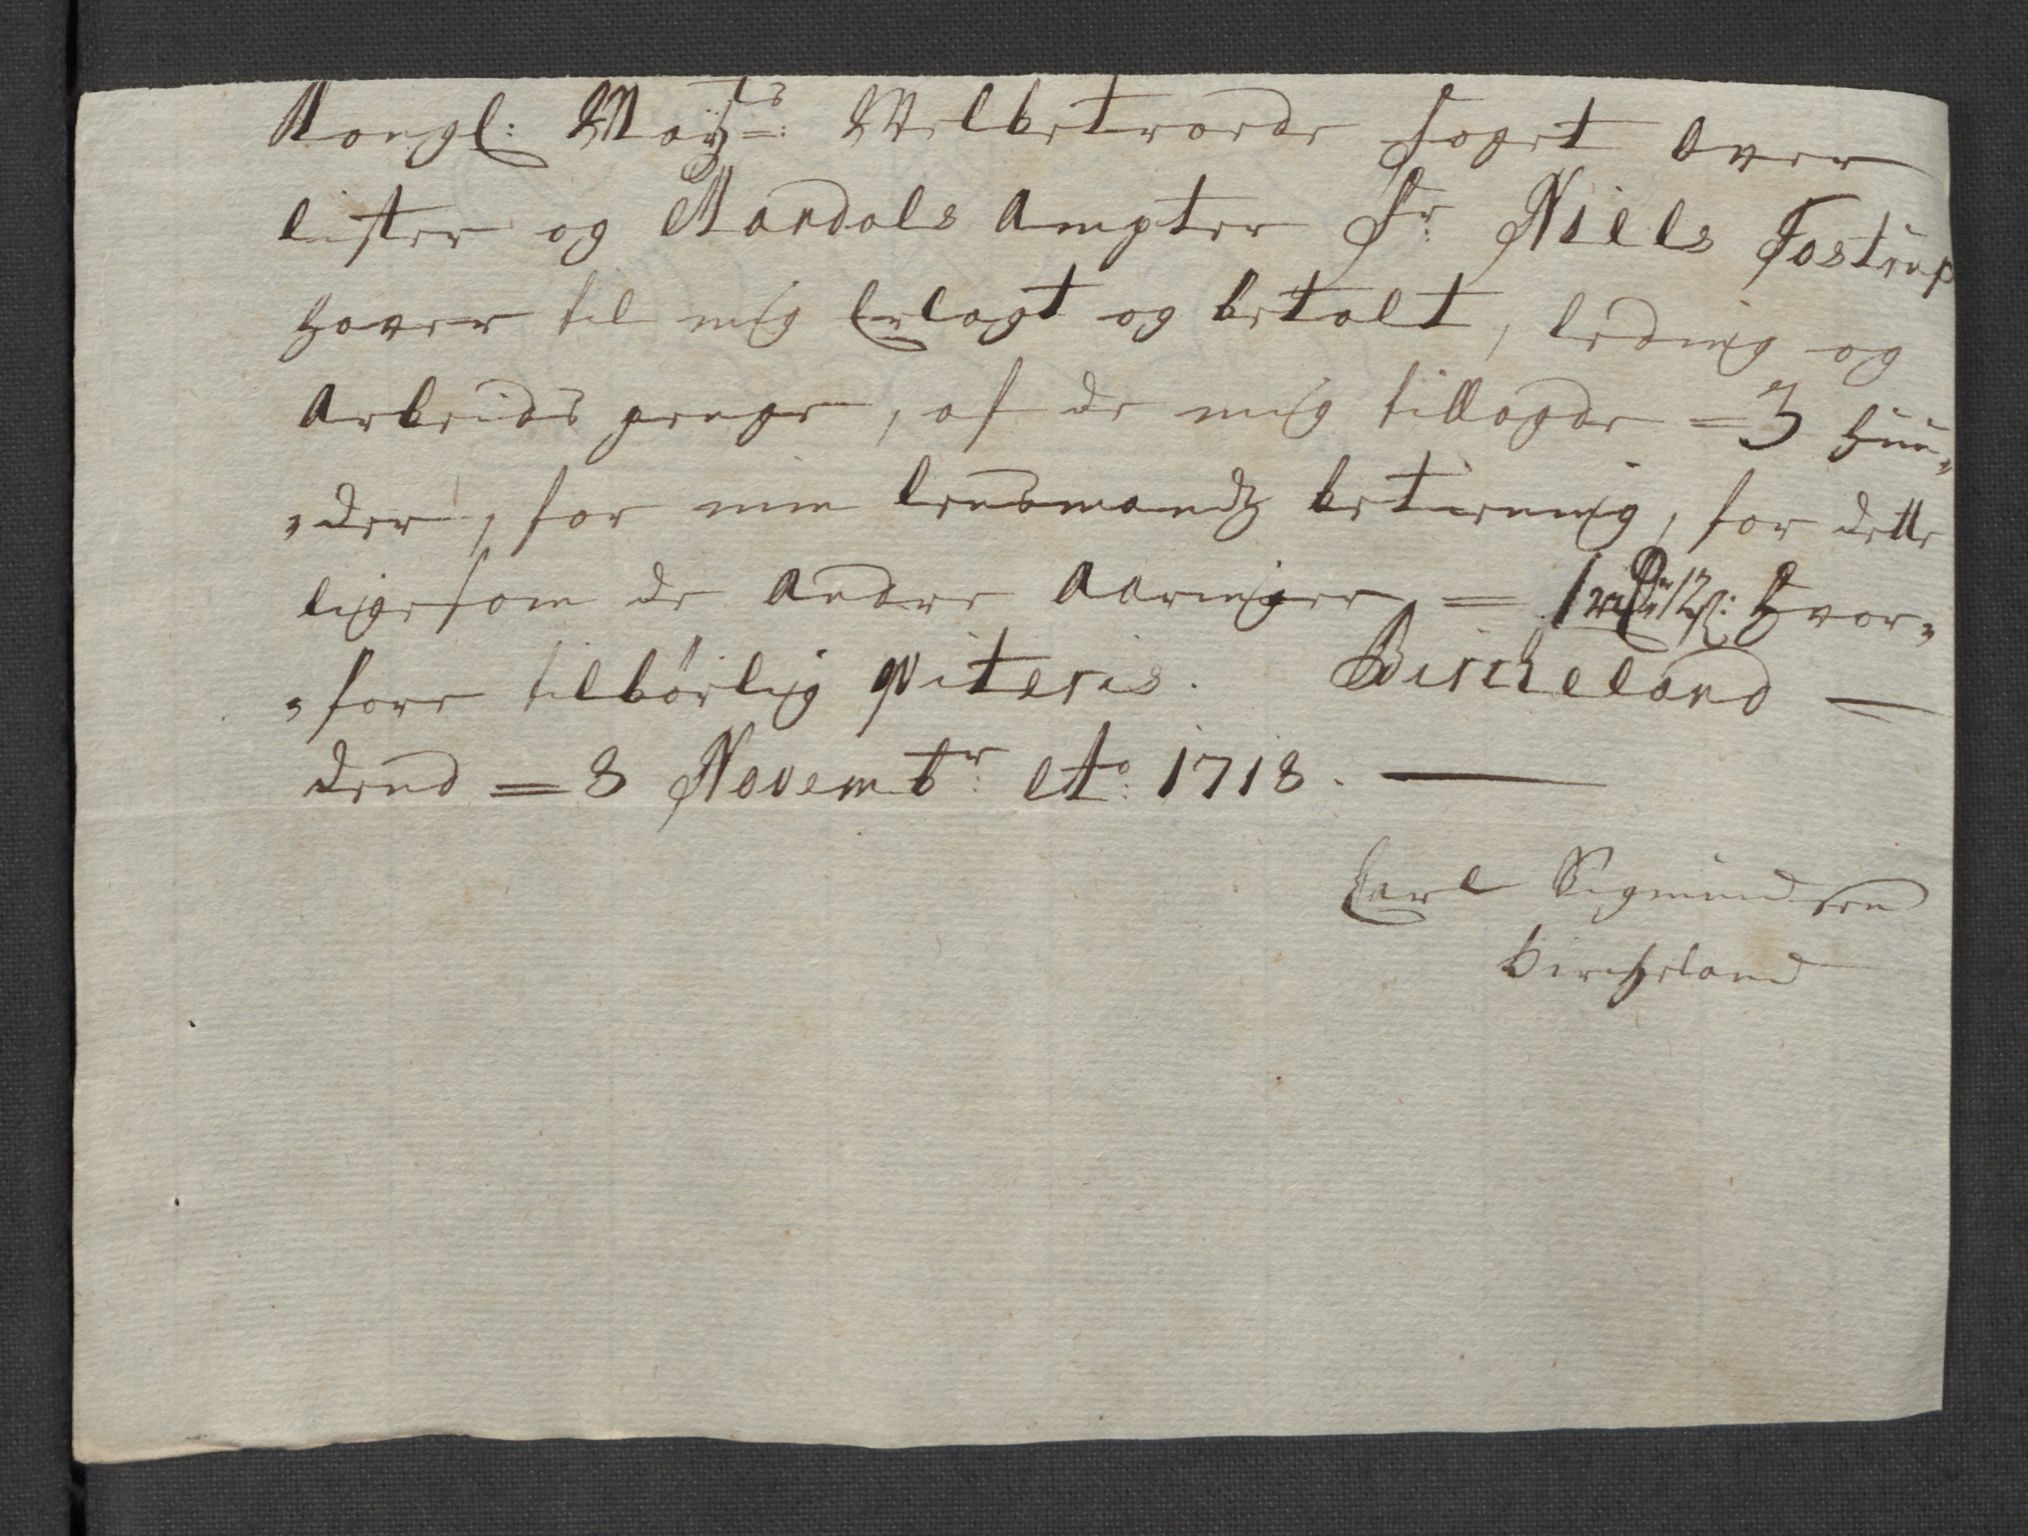 Kongl: May:ts Welbetroede foget over
Lister og Mandals Ampter Sr: Niels Tostrup
hawer til mig Erlagt og betalt, leding og
Arbeids penge, af de mig tillagde = 3 huu„
„der, for min Lensmandtz betiening, for dette
ligesom de Andre Aaringer = 1 rdr 12 s: hvor„
„fore tilbørlig qviteris. Bircheland =
dend = 8 Novembr: Ao: 1718.
Carl Sigmundsen
Bircheland